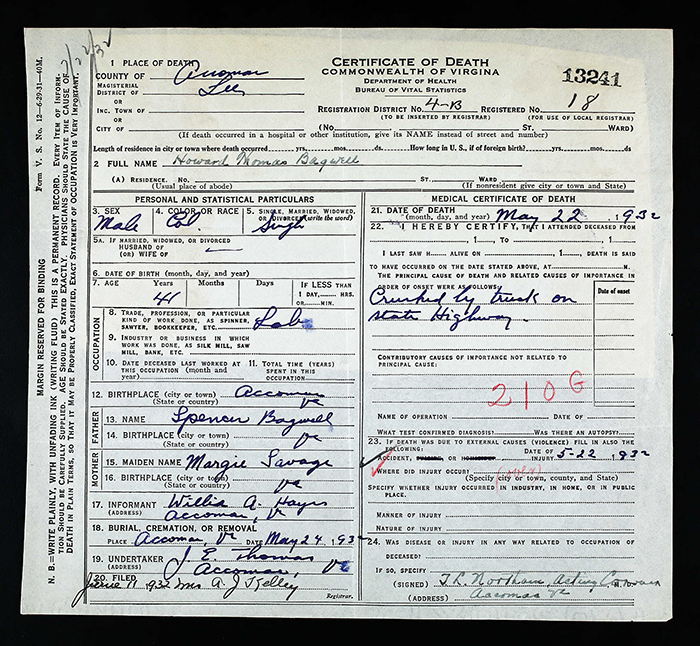 7/22/32
1 PLACE OF DEATH
COUNTY OF Accomac
MAGISTERIAL DISTRICT OF Lee
OR
INC. TOWN OF
OR
CITY OF
CERTIFICATE OF DEATH
COMMONWEALTH OF VIRGINIA
DEPARTMENT OF HEALTH
BUREAU OF VITAL STATISTICS
13241
REGISTRATION DISTRICT NO. 4-B REGISTERED NO. 18
(TO BE INSERTED BY REGISTRAR) (FOR USE OF LOCAL REGISTRAR)
(No. ST. WARD)
(If death occurred in a hospital or other institution, give its NAME instead of street and number)
Length of residence in city or town where death occurred yrs. mos. ds. How long in U. S., if of foreign birth? yrs. mos. ds.
2 FULL NAME Howard Thomas Bagwell
(A) RESIDENCE. No. ST. WARD
(Usual place of abode) (If nonresident give city or town and State)
PERSONAL AND STATISTICAL PARTICULARS
3. SEX Male
4. COLOR OR RACE Col.
5. SINGLE, MARRIED, WIDOWED, OR DIVORCED (write the word) Single
5A. IF MARRIED, WIDOWED, OR DIVORCED
HUSBAND OF
(OR) WIFE OF
6. DATE OF BIRTH (month, day, and year)
7. AGE Years Months Days IF LESS THAN
41 1 DAY, HRS.
OR MIN.
OCCUPATION
8. TRADE, PROFESSION, OR PARTICULAR
KIND OF WORK DONE, AS SPINNER,
SAWYER, BOOKKEEPER, ETC. Lab
9. INDUSTRY OR BUSINESS IN WHICH
WORK WAS DONE, AS SILK MILL, SAW
MILL, BANK, ETC.
10. DATE DECEASED LAST WORKED AT
THIS OCCUPATION (month and year)
11. TOTAL TIME (YEARS)
SPENT IN THIS
OCCUPATION
12. BIRTHPLACE (city or town) Accomac
(State or country) Va
FATHER
13. NAME Spencer Bagwell
14. BIRTHPLACE (city or town)
(State or country) Va
MOTHER
15. MAIDEN NAME Margie Savage
16. BIRTHPLACE (city or town)
(State or country) Va
17. INFORMANT Willia A. Hayes
(ADDRESS) Accomac, Va
18. BURIAL, CREMATION, OR REMOVAL
PLACE Accomac, Va DATE May 24, 1932
19. UNDERTAKER J. E. Thomas
(ADDRESS) Accomac, Va
20. FILED June 11 1932 Mrs A. J. Kelley
Registrar.
MEDICAL CERTIFICATE OF DEATH
21. DATE OF DEATH
(month, day, and year) May 22, 1932
22. I HEREBY CERTIFY, THAT I ATTENDED DECEASED FROM
, 1 , TO , 1
I LAST SAW H ALIVE ON , 1 DEATH IS SAID
TO HAVE OCCURRED ON THE DATE STATED ABOVE, AT M.
THE PRINCIPAL CAUSE OF DEATH AND RELATED CAUSES OF IMPORTANCE IN
ORDER OF ONSET WERE AS FOLLOWS: Date of onset
Crushed by truck on
state Highway.
CONTRIBUTORY CAUSES OF IMPORTANCE NOT RELATED TO
PRINCIPAL CAUSE:
210G
NAME OF OPERATION DATE OF
WHAT TEST CONFIRMED DIAGNOSIS? WAS THERE AN AUTOPSY?
23. IF DEATH WAS DUE TO EXTERNAL CAUSES (VIOLENCE) FILL IN ALSO THE
FOLLOWING:
ACCIDENT, SUICIDE, OR HOMICIDE DATE OF INJURY 5-22, 1932
WHERE DID INJURY OCCUR? (over)
(Specify city or town, county, and State)
SPECIFY WHETHER INJURY OCCURRED IN INDUSTRY, IN HOME, OR IN PUBLIC
PLACE.
MANNER OF INJURY
NATURE OF INJURY
24. WAS DISEASE OR INJURY IN ANY WAY RELATED TO OCCUPATION OF
DECEASED?
IF SO, SPECIFY
(SIGNED) J.R. Northam, Acting Coroner
(ADDRESS) Accomac Va
Form V. S. No. 12—6-29-31—40M.
MARGIN RESERVED FOR BINDING
N. B.—WRITE PLAINLY, WITH UNFADING INK (WRITING FLUID) THIS IS A PERMANENT RECORD. EVERY ITEM OF INFORMATION SHOULD BE CAREFULLY SUPPLIED. AGE SHOULD BE STATED EXACTLY. PHYSICIANS SHOULD STATE THE CAUSE OF DEATH IN PLAIN TERMS, SO THAT IT MAY BE PROPERLY CLASSIFIED. EXACT STATEMENT OF OCCUPATION IS VERY IMPORTANT.